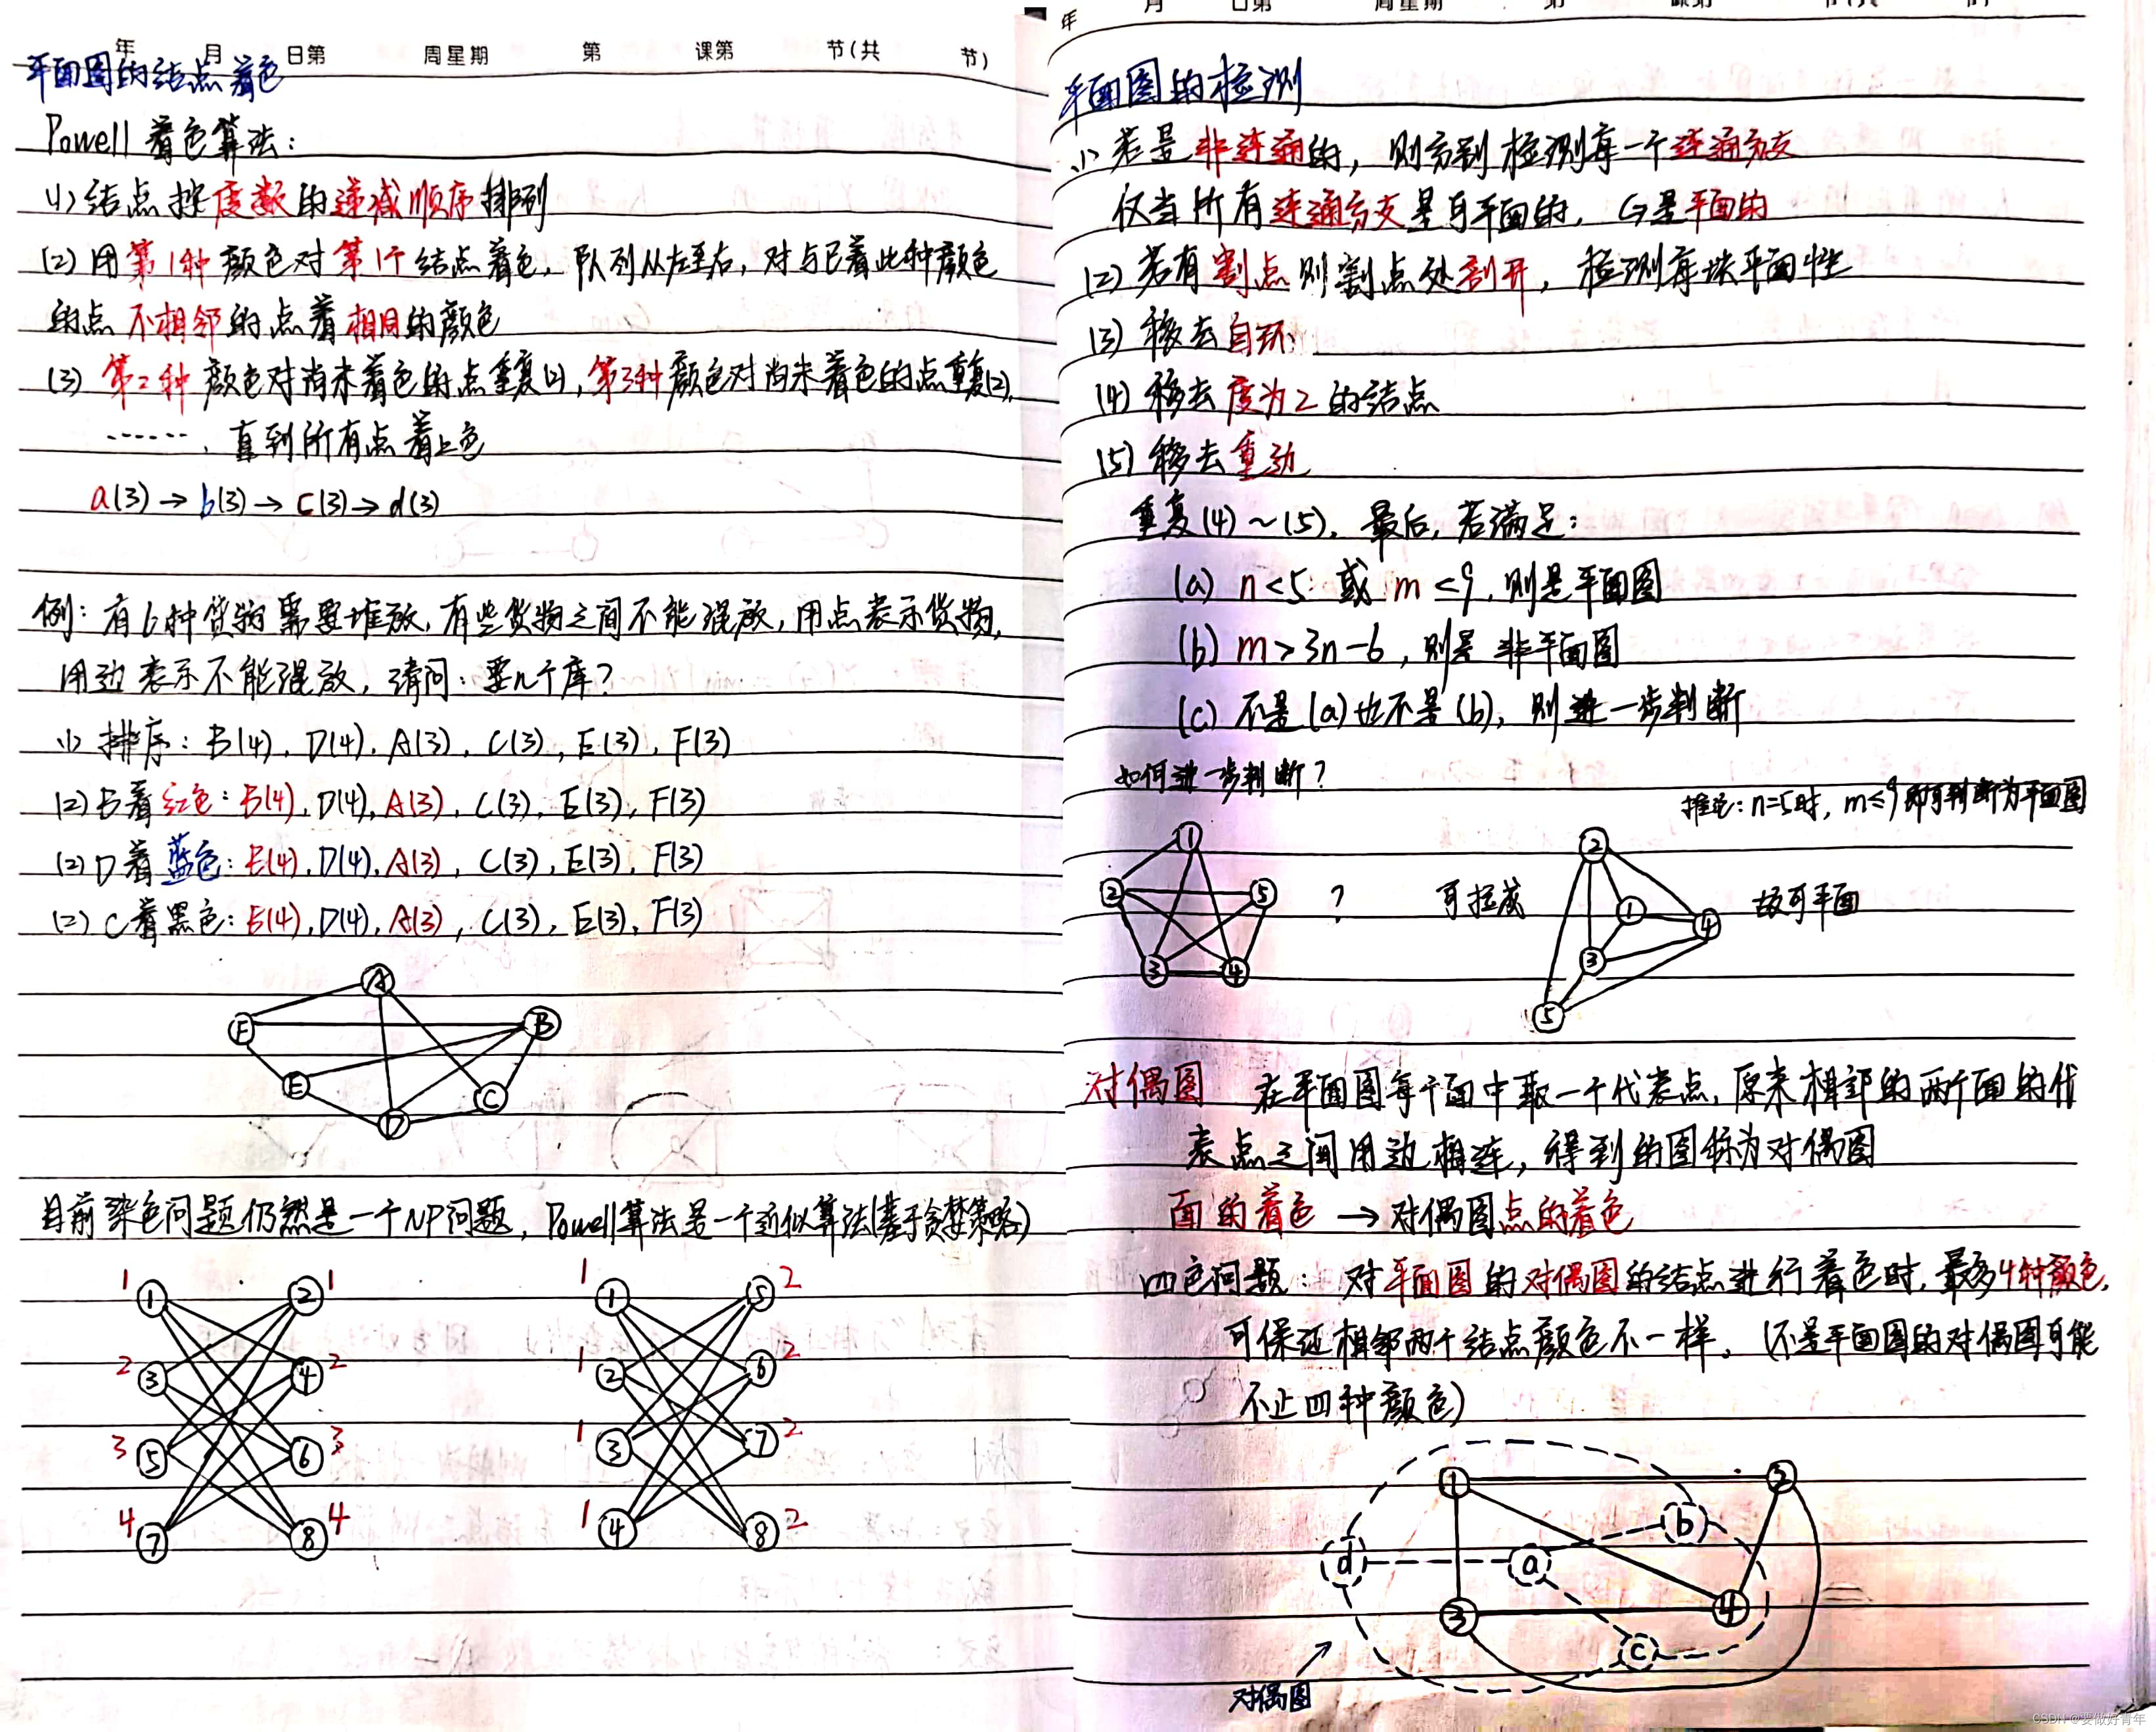 年 月 日第 周星期 第 课第 节(共 节)
平面图的结点着色
Powell 着色算法:
(1) 结点按度数的递减顺序排列
(2) 用第1种颜色对第1个结点着色, 队列从左至右, 对与已着此种颜色
的点不相邻的点着相同的颜色
(3) 第2种颜色对尚未着色的点重复(2), 第3种颜色对尚未着色的点重复(2),
……, 直到所有点着上色
a(3)→b(3)→c(3)→d(3)
例: 有6种货物需要堆放, 有些货物之间不能混放, 用点表示货物,
用边表示不能混放, 请问: 要几个库?
(1) 排序: B(4), D(4), A(3), C(3), E(3), F(3)
(2) B着红色: B(4), D(4), A(3), C(3), E(3), F(3)
(2) D着蓝色: B(4), D(4), A(3), C(3), E(3), F(3)
(2) C着黑色: B(4), D(4), A(3), C(3), E(3), F(3)
A
F B
E C
D
目前染色问题仍然是一个NP问题, Powell算法是一个近似算法(基于贪婪策略)
1 ① ② 1 1 ① ⑤ 2
2 ③ ④ 2 1 ② ⑥ 2
3 ⑤ ⑥ 3 1 ③ ⑦ 2
4 ⑦ ⑧ 4 1 ④ ⑧ 2
年 月 日第 周星期 第 课第 节(共 节)
平面图的检测
(1) 若是非连通的, 则分别检测每一个连通分支
仅当所有连通分支是可平面的, G是平面的
(2) 若有割点则割点处割开, 检测每块平面性
(3) 移去自环
(4) 移去度为2的结点
(5) 移去重边
重复(4)~(5), 最后, 若满足:
(a) n<5 或 m≤9, 则是平面图
(b) m>3n-6, 则是 非平面图
(c) 不是(a)也不是(b), 则进一步判断
如何进一步判断?
推论: n=5时, m≤9即可判断为平面图
① ② ⑤ ③ ④ ? 可拉成 ② ① ④ ③ ⑤ 故可平面
对偶图 在平面图每个面中取一个代表点, 原来相邻的两个面的代
表点之间用边相连, 得到的图称为对偶图
面的着色 → 对偶图点的着色
四色问题: 对平面图的对偶图的结点进行着色时, 最多4种颜色,
可保证相邻两个结点颜色不一样。(不是平面图的对偶图可能
不止四种颜色)
① ②
b
d a
③ ④
c
对偶图
CSDN @要做好青年